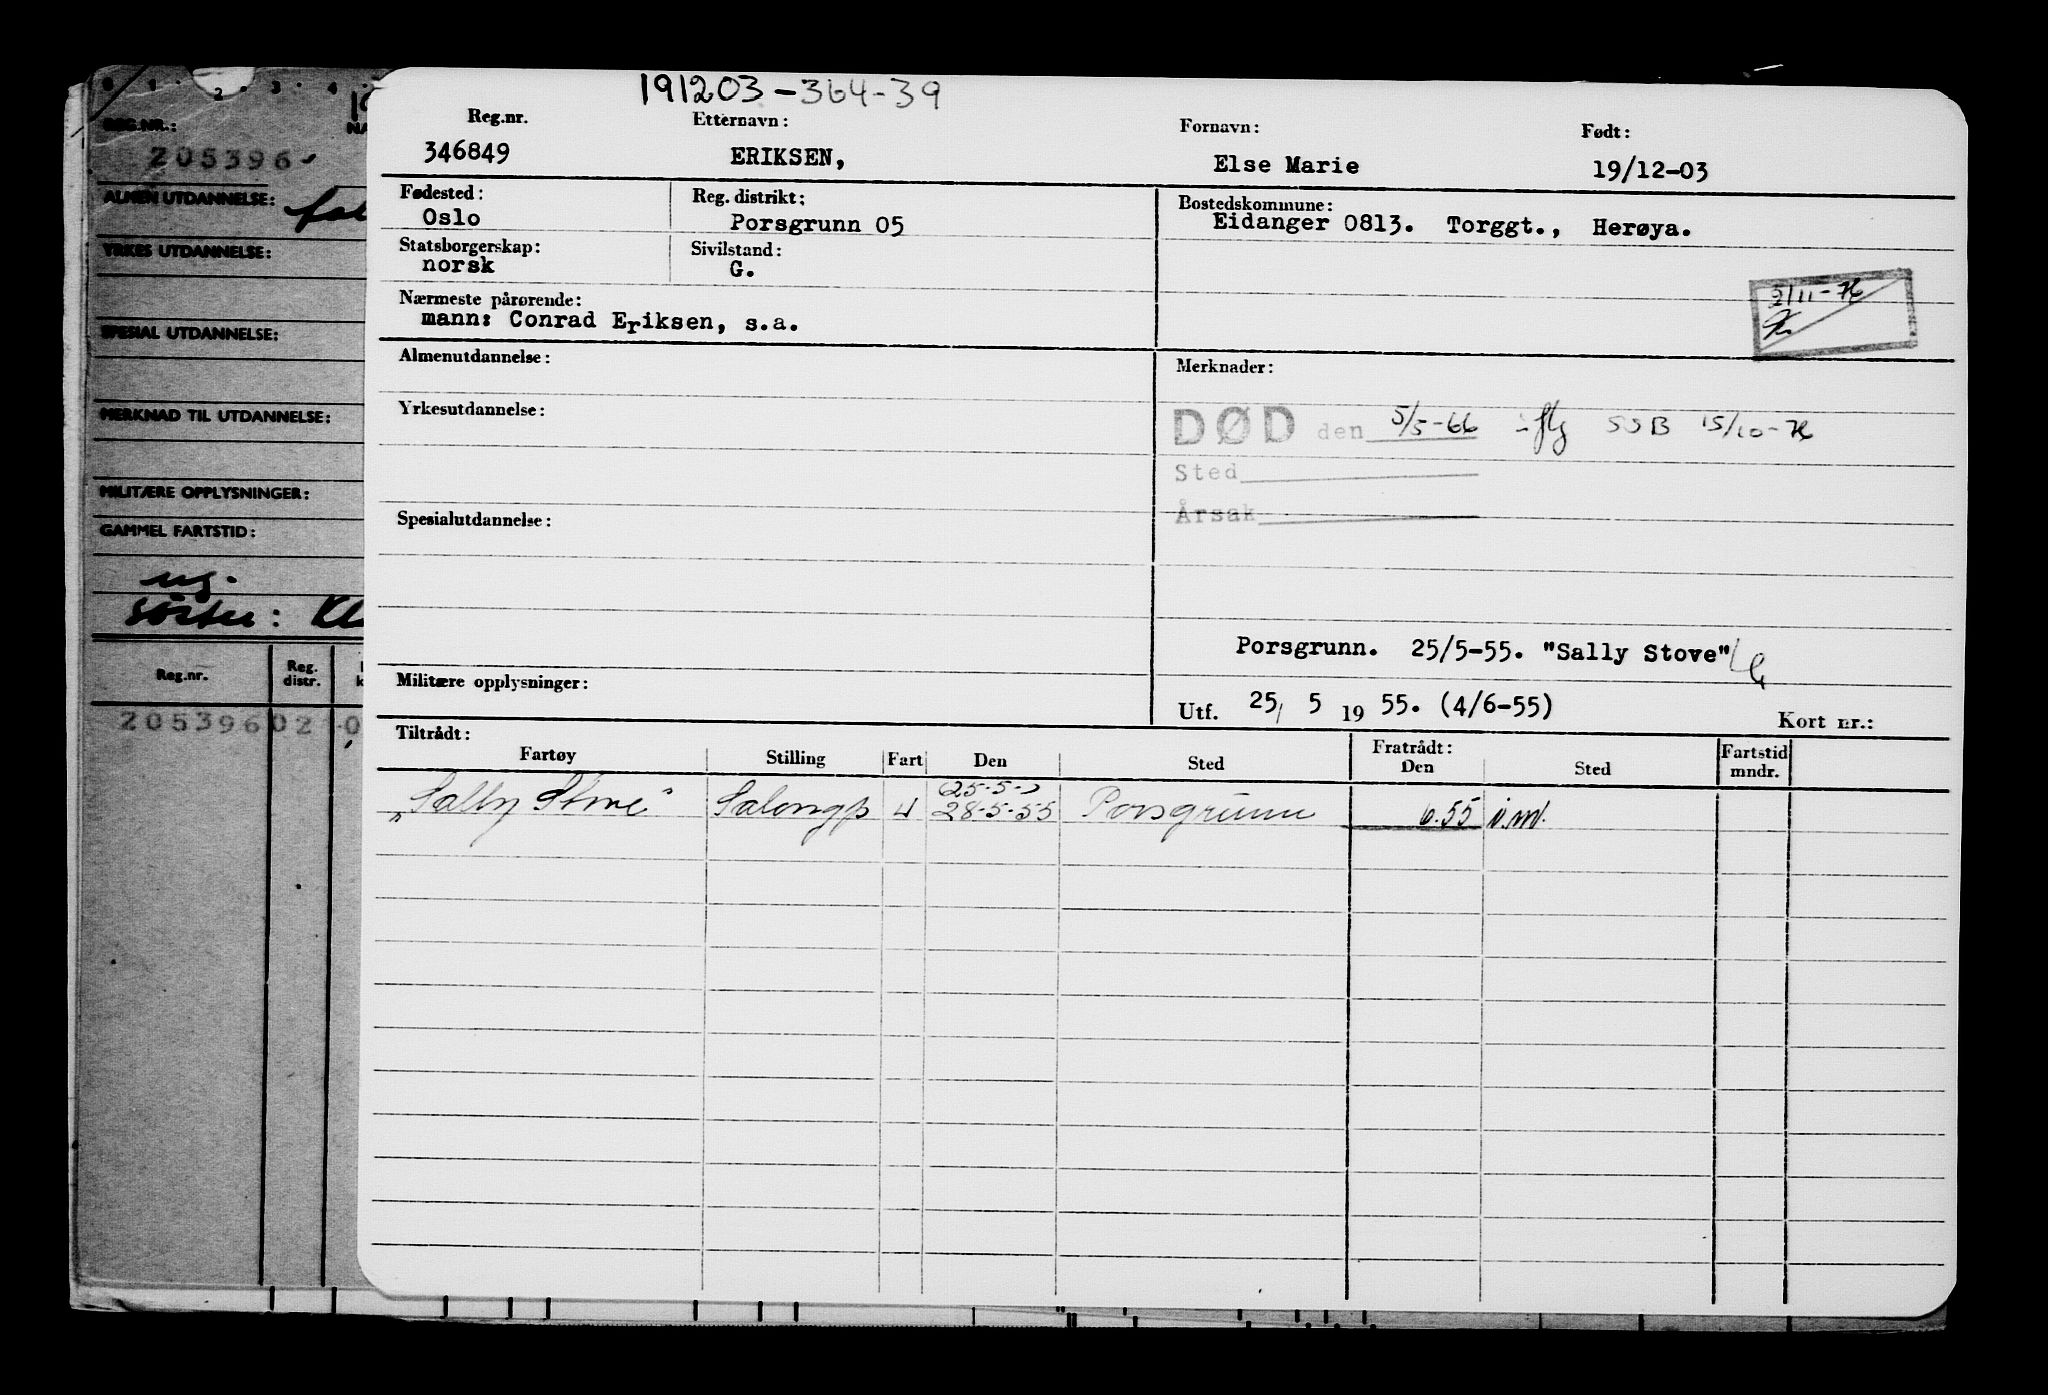 191203-364-39
Reg.nr. Etternavn: Fornavn: Født:
346849 ERIKSEN, Else Marie 19/12-03
Fødested: Reg. distrikt: Bostedskommune:
Oslo Porsgrunn 05 Eidanger 0813. Torggt., Herøya.
Statsborgerskap: Sivilstand:
norsk G.
5/11-76
Nærmeste pårørende:
mann: Conrad Eriksen, s.a.
Almenutdannelse: Merknader:
Yrkesutdannelse:
DØD den 5/5-66 SSB 15/10-76
Sted
Årsak
Spesialutdannelse:
Porsgrunn. 25/5-55. "Sally Stove"
Militære opplysninger:
Utf. 25/ 5 19 55. (4/6-55) Kort nr.:
Tiltrådt: Fratrådt: Fartstid
Fartøy Stilling Fart Den Sted Den Sted mndr.
25-5-
"Sally Stove" Salongp U 28-5-55 Porsgrunn 6.55 i.m.
0 1 2 3 4
REG.NR.: NA
205396
ALMEN UTDANNELSE:
YRKES UTDANNELSE:
SPESIAL UTDANNELSE:
MERKNAD TIL UTDANNELSE:
MILITÆRE OPPLYSNINGER:
GAMMEL FARTSTID:
ug.
søster: Kl
Reg.nr. Reg. distr.
205396 02 0